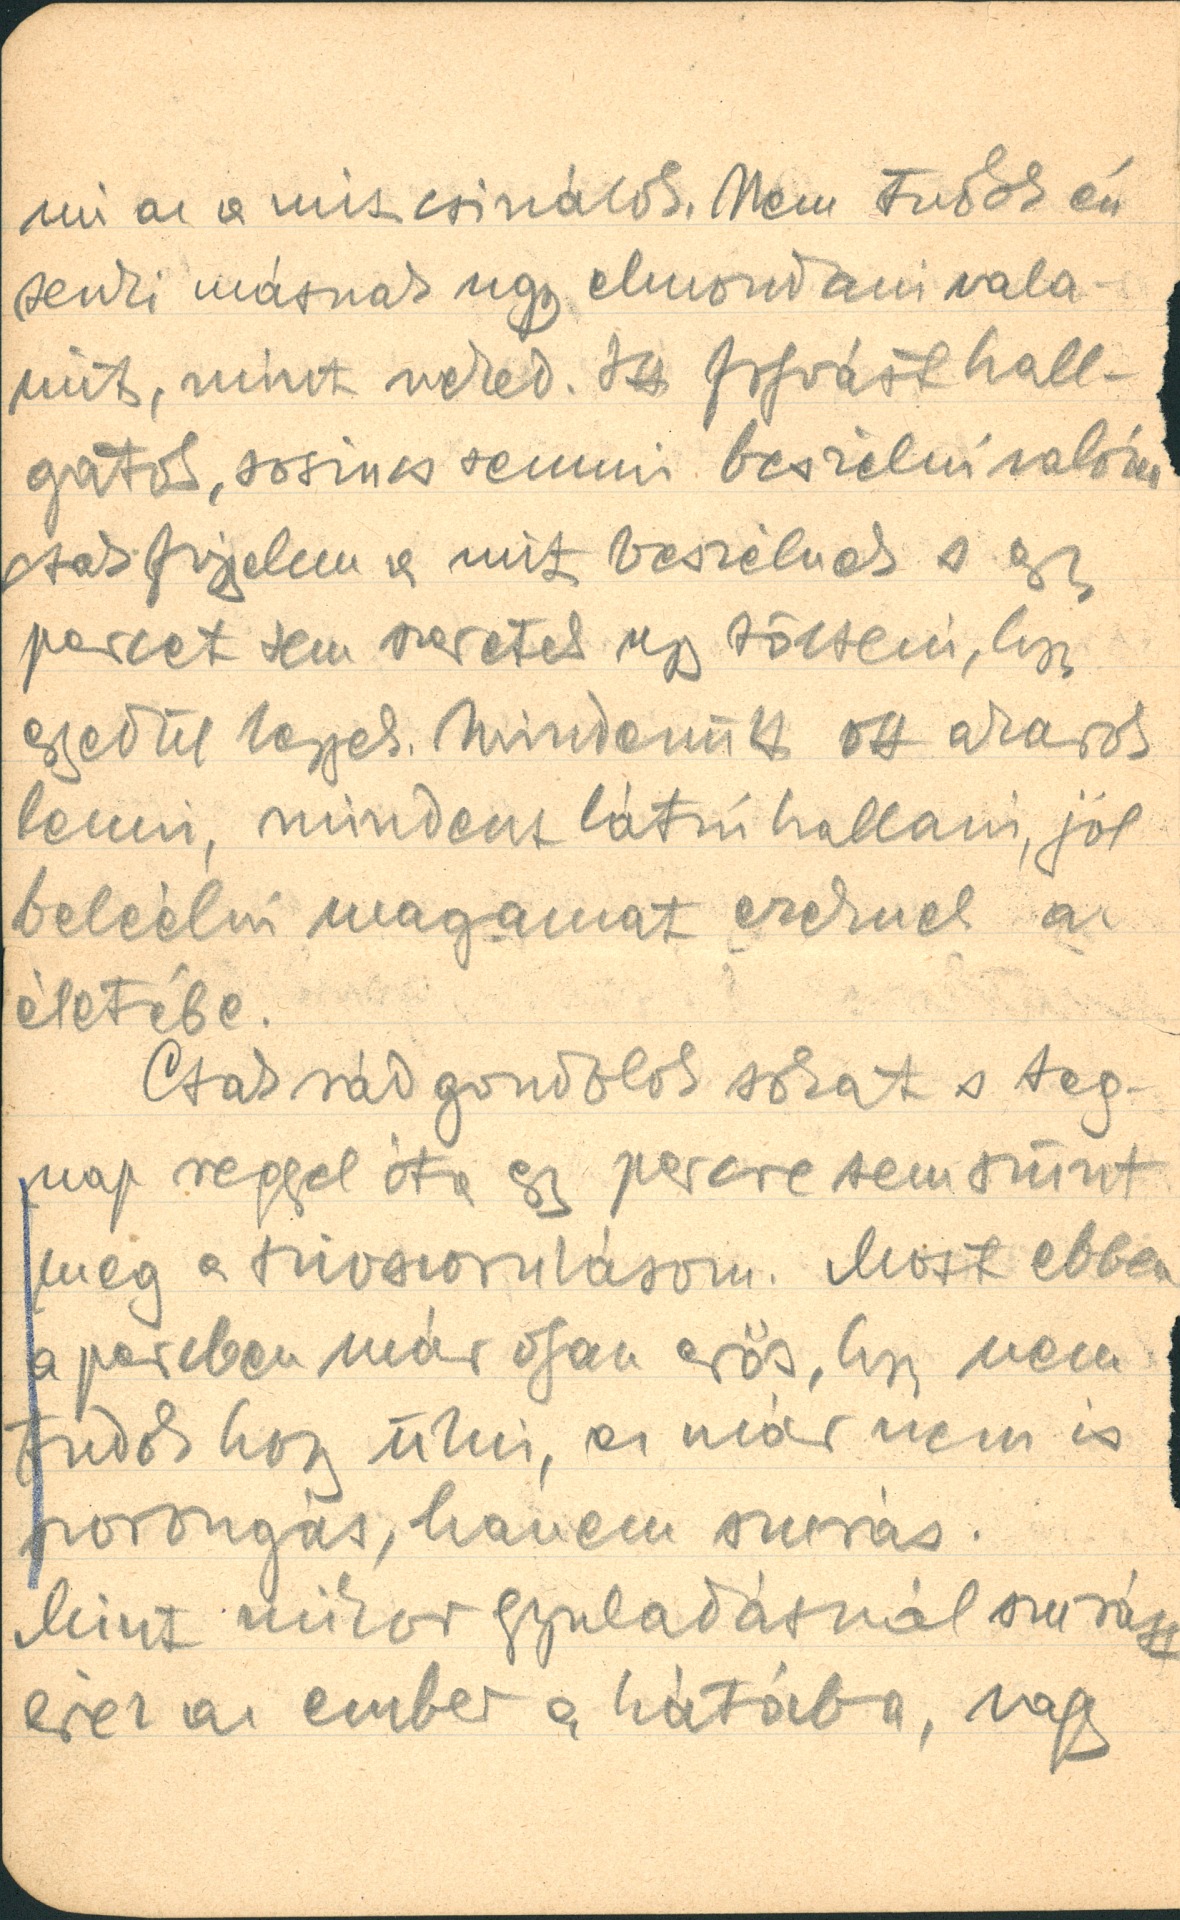 mi az a mit csinálok. Nem tudok én
senki másnak ugy elmondani vala-
mit, mint neked. Itt folyvást hall-
gatok, sosincs semmi beszélni valóm
csak figyelem a mit beszélnek s egy
percet sem szeretek ugy tölteni, hogy
egyedül legyek. Mindenütt ott akarok
lenni, mindent látni hallani, jól
beleélni magamat ezeknek az
életébe.
Csak rád gondolok sokat s teg-
nap reggel óta egy percre sem szünt
meg a szivszorulásom. Most ebben
a percben már olyan erős, hogy nem
tudok hogy ülni, ez már nem is
szorongás, hanem szurás.
Mint mikor gyuladásnál szurást
érez az ember a hátába, vagy